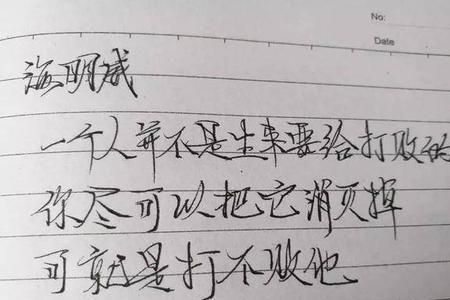 No:
Date
海明威
一个人并不是生来要给打败的
你尽可以把它消灭掉
可就是打不败他